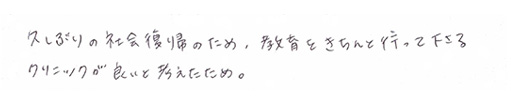 久しぶりの社会復帰のため、教育をきちんと行って下さる
クリニックが良いと考えたため。